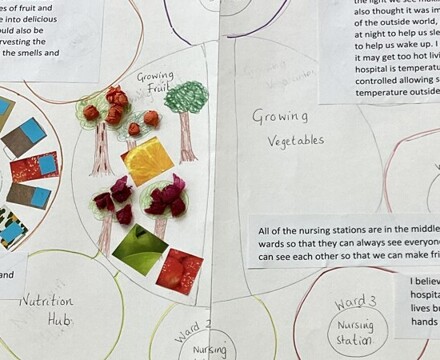 es of fruit and
e into delicious
ould also be
rvesting the
the smells and
also thought it was im
of the outside world,
at night to help us sle
to help us wake up. I
it may get too hot livi
hospital is temperatu
controlled allowing s
temperature outside
Growing
Fruit
Growing
Vegetables
All of the nursing stations are in the middle
wards so that they can always see everyone
can see each other so that we can make frie
and
Nutrition
Hub
Ward 2
Nursing
Ward 3
Nursing
Station
I believ
hospita
lives br
hands